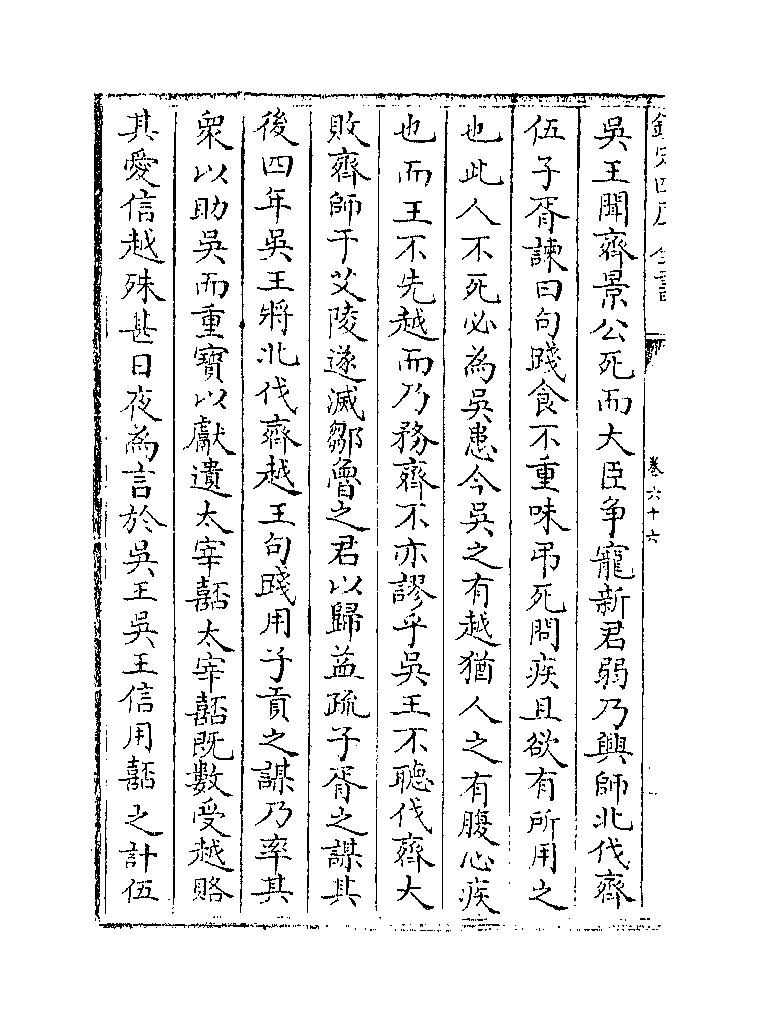 欽定四庫全書
卷六十六
吳王聞齊景公死而大臣争寵新君弱乃興師北伐齊
伍子胥諫曰句踐食不重味弔死問疾且欲有所用之
也此人不死必為吳患今吳之有越猶人之有腹心疾
也而王不先越而乃務齊不亦謬乎吳王不聽伐齊大
敗齊師于艾陵遂滅鄒魯之君以歸益疏子胥之謀其
後四年吳王將北伐齊越王句踐用子貢之謀乃率其
衆以助吳而重寶以獻遺太宰嚭太宰嚭既數受越賂
其愛信越殊甚日夜為言於吳王吳王信用嚭之計伍